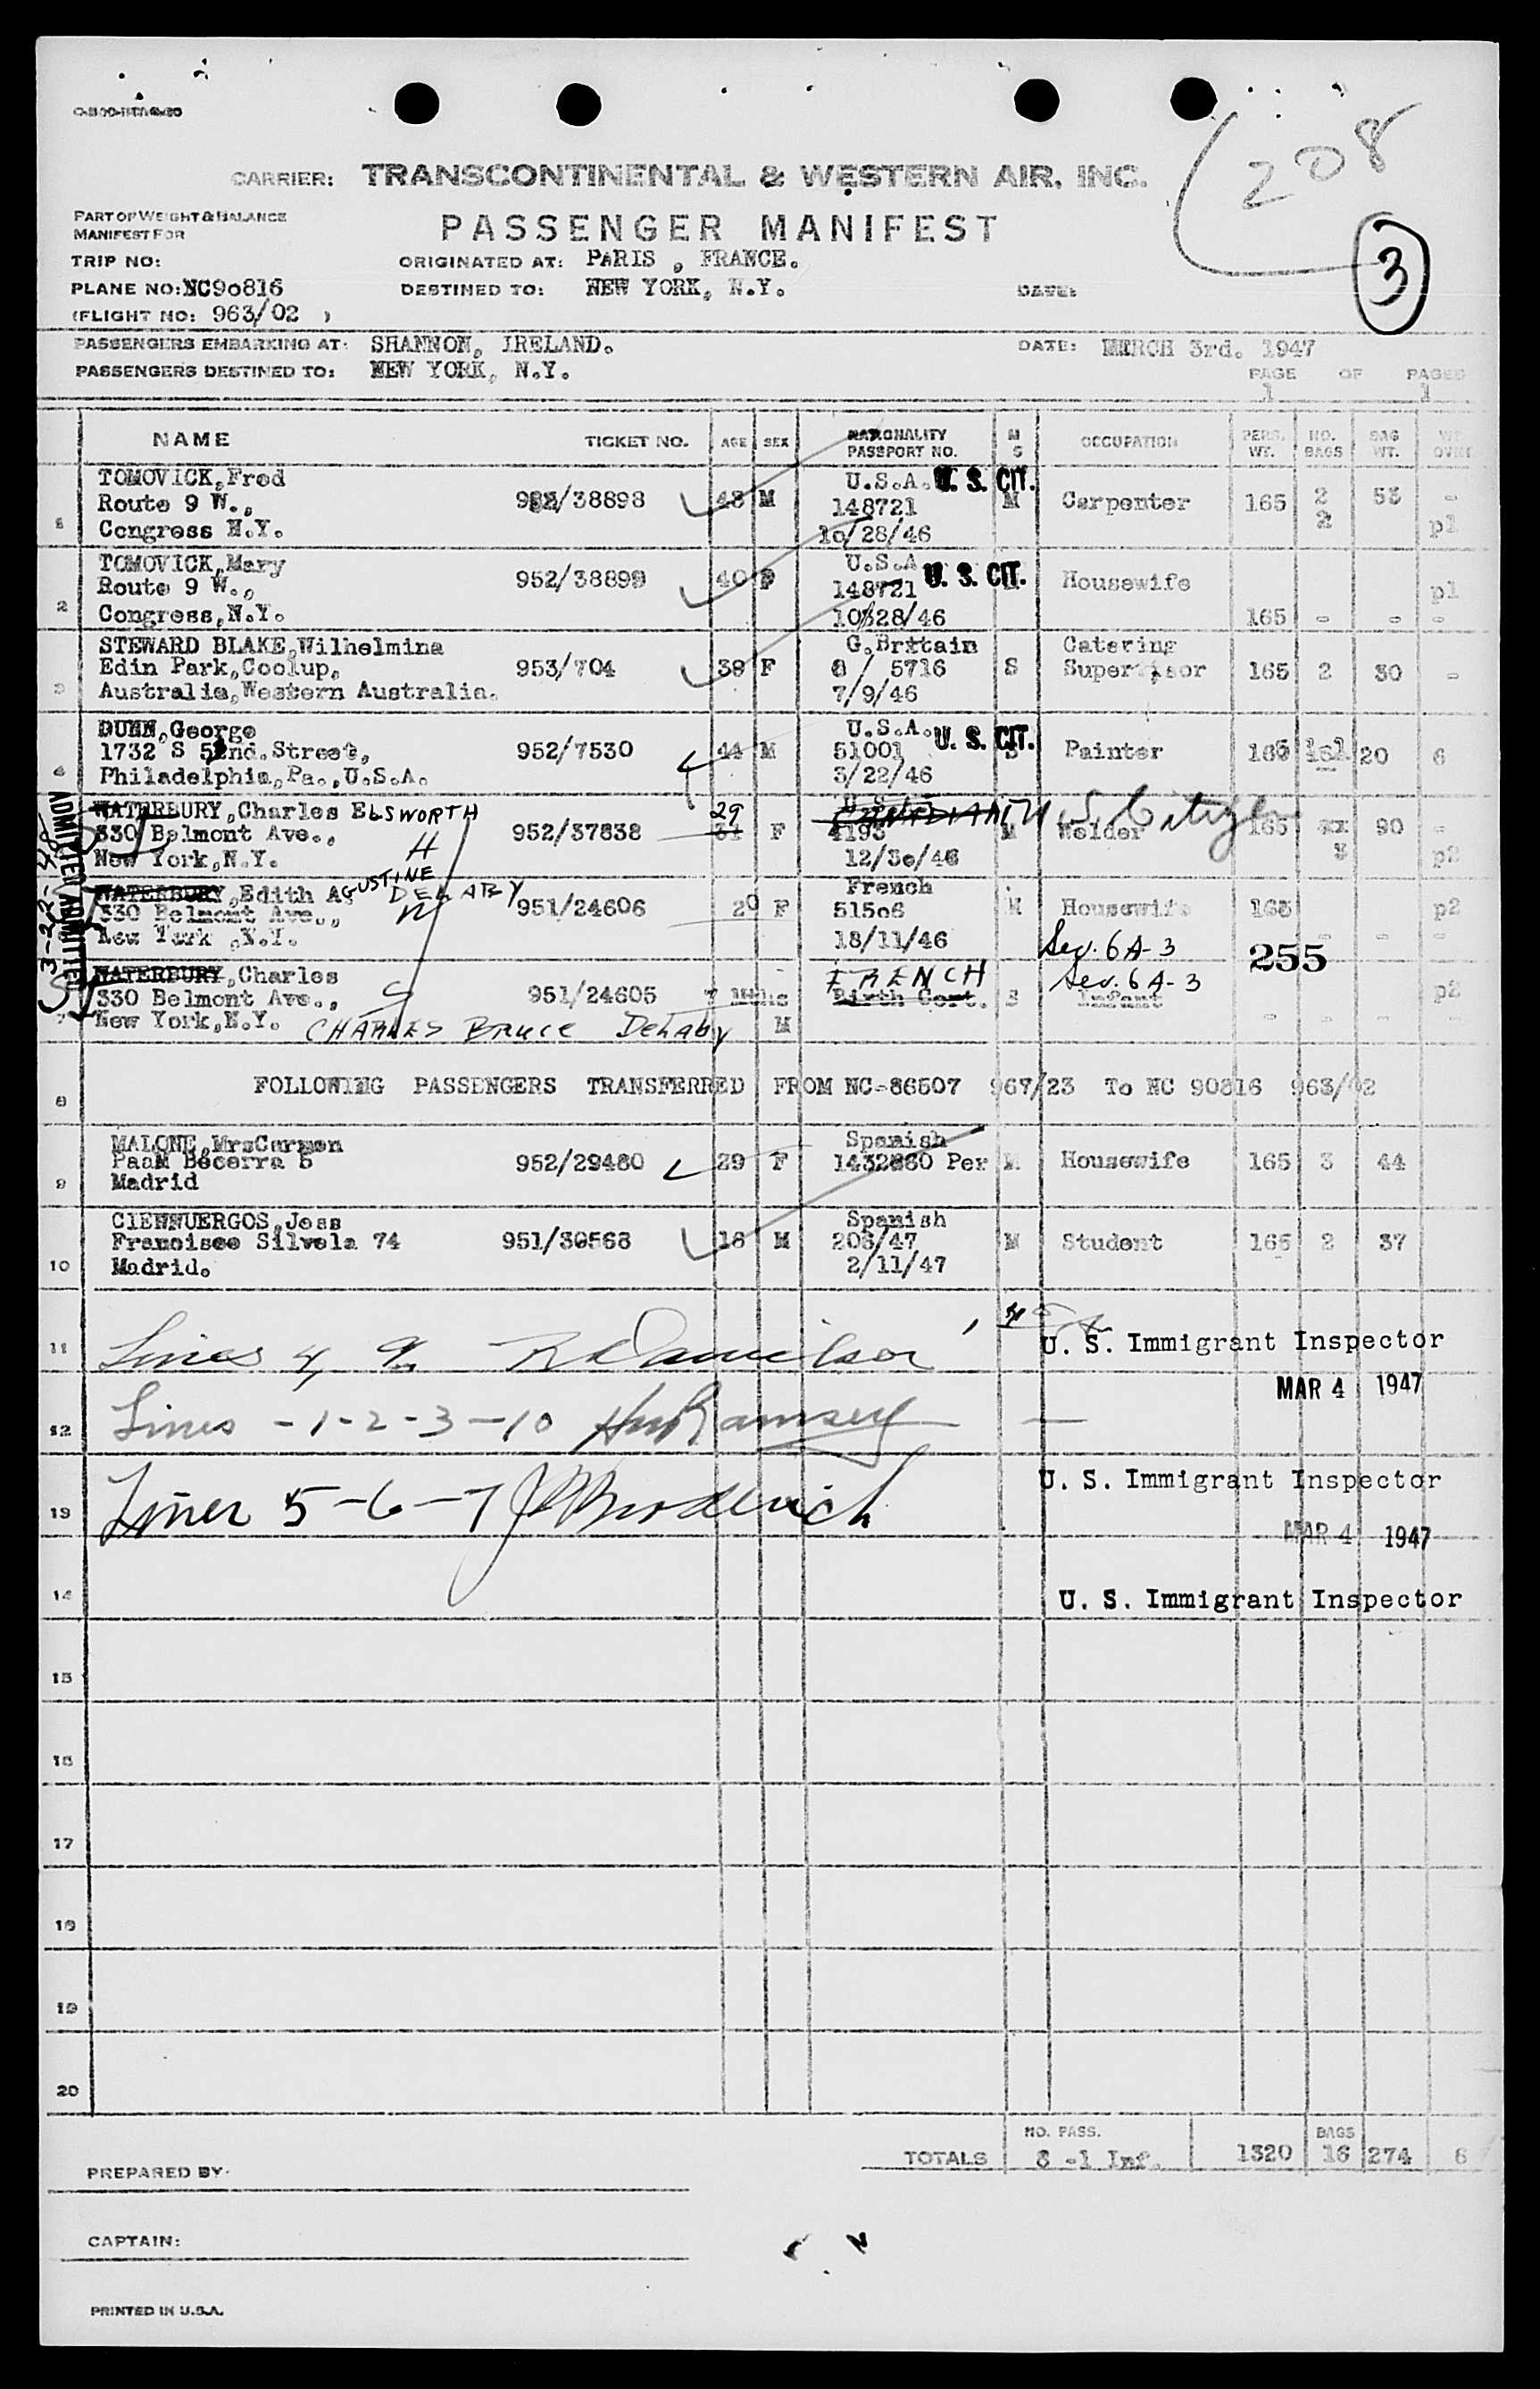 208
3
CARRIER: TRANSCONTINENTAL & WESTERN AIR, INC.
PART OF WEIGHT & BALANCE
MANIFEST FOR
PASSENGER MANIFEST
TRIP NO:
ORIGINATED AT: PARIS , FRANCE.
PLANE NO: NC90816
DESTINED TO: NEW YORK, N.Y.
DATE:
(FLIGHT NO: 963/02 )
PASSENGERS EMBARKING AT: SHANNON, IRELAND.
DATE: MARCH 3rd. 1947
PASSENGERS DESTINED TO: NEW YORK, N.Y.
PAGE OF PAGES
1 1
NAME TICKET NO. AGE SEX NATIONALITY PASSPORT NO. M S OCCUPATION PERS. WT. NO. BAGS BAG WT.
TOMOVICK,Fred U.S.A. U. S. CIT.
1 Route 9 W., /38898 48 M 148721 M Carpenter 165 2 53 -
Congress N.Y. 10/28/46 2 p1
TOMOVICK,Mary U.S.A U. S. CIT.
2 Route 9 W., 952/38899 40 F 148721 Housewife p1
Congress,N.Y. 10/28/46 165 - - -
STEWARD BLAKE,Wilhelmina G.Britain Catering
3 Edin Park,Coolup, 953/704 38 F 5716 S Supervisor 165 2 30 -
Australia,Western Australia. 7/9/46
DUNN,George U.S.A. U. S. CIT.
4 1732 S 52nd.Street, 952/7530 44 M 51001 S Painter 165 20 6
Philadelphia,Pa.,U.S.A. 3/22/46
WATERBURY,Charles ELSWORTH 29 U S Citizen
330 Belmont Ave., 952/37838 31 F 4193 M Welder 165 90 -
New York,N.Y. H 12/30/46 3 p2
WATERBURY,Edith AGUSTINE DELABY French
330 Belmont Ave., 951/24606 20 F 51506 M Housewife 165 p2
New York ,N.Y. W 18/11/46 - - -
Sec. 6 A-3 255
WATERBURY,Charles FRENCH Sec. 6 A-3
7 330 Belmont Ave., S 951/24605 7 Mths Birth Cert. S Infant p2
New York,N.Y. CHARLES BRUCE Delaby M - - - -
ADMITTED ADMITTED
8 FOLLOWING PASSENGERS TRANSFERRED FROM NC-86507 967/23 To NC 90816 963/02
MALONE,MrsCarmen Spanish
9 Becerra 5 952/29480 29 F Per M Housewife 165 3 44
Madrid
CIENNUERGOS,Jose Spanish
Francisco Silvela 74 951/30568 18 M 208/47 M Student 165 2 37
10 Madrid. 2/11/47
11 Lines 4, 9. R Danielson
U. S. Immigrant Inspector
MAR 4 1947
12 Lines -1-2-3-10 Ramsey
U. S. Immigrant Inspector
13 Lines 5-6-7 Broderick
MAR 4 1947
14 U. S. Immigrant Inspector
15
16
17
18
19
20
NO. PASS. BAGS
TOTALS 8 -1 Inf. 1320 16 274 6
PREPARED BY.
CAPTAIN:
PRINTED IN U.S.A.